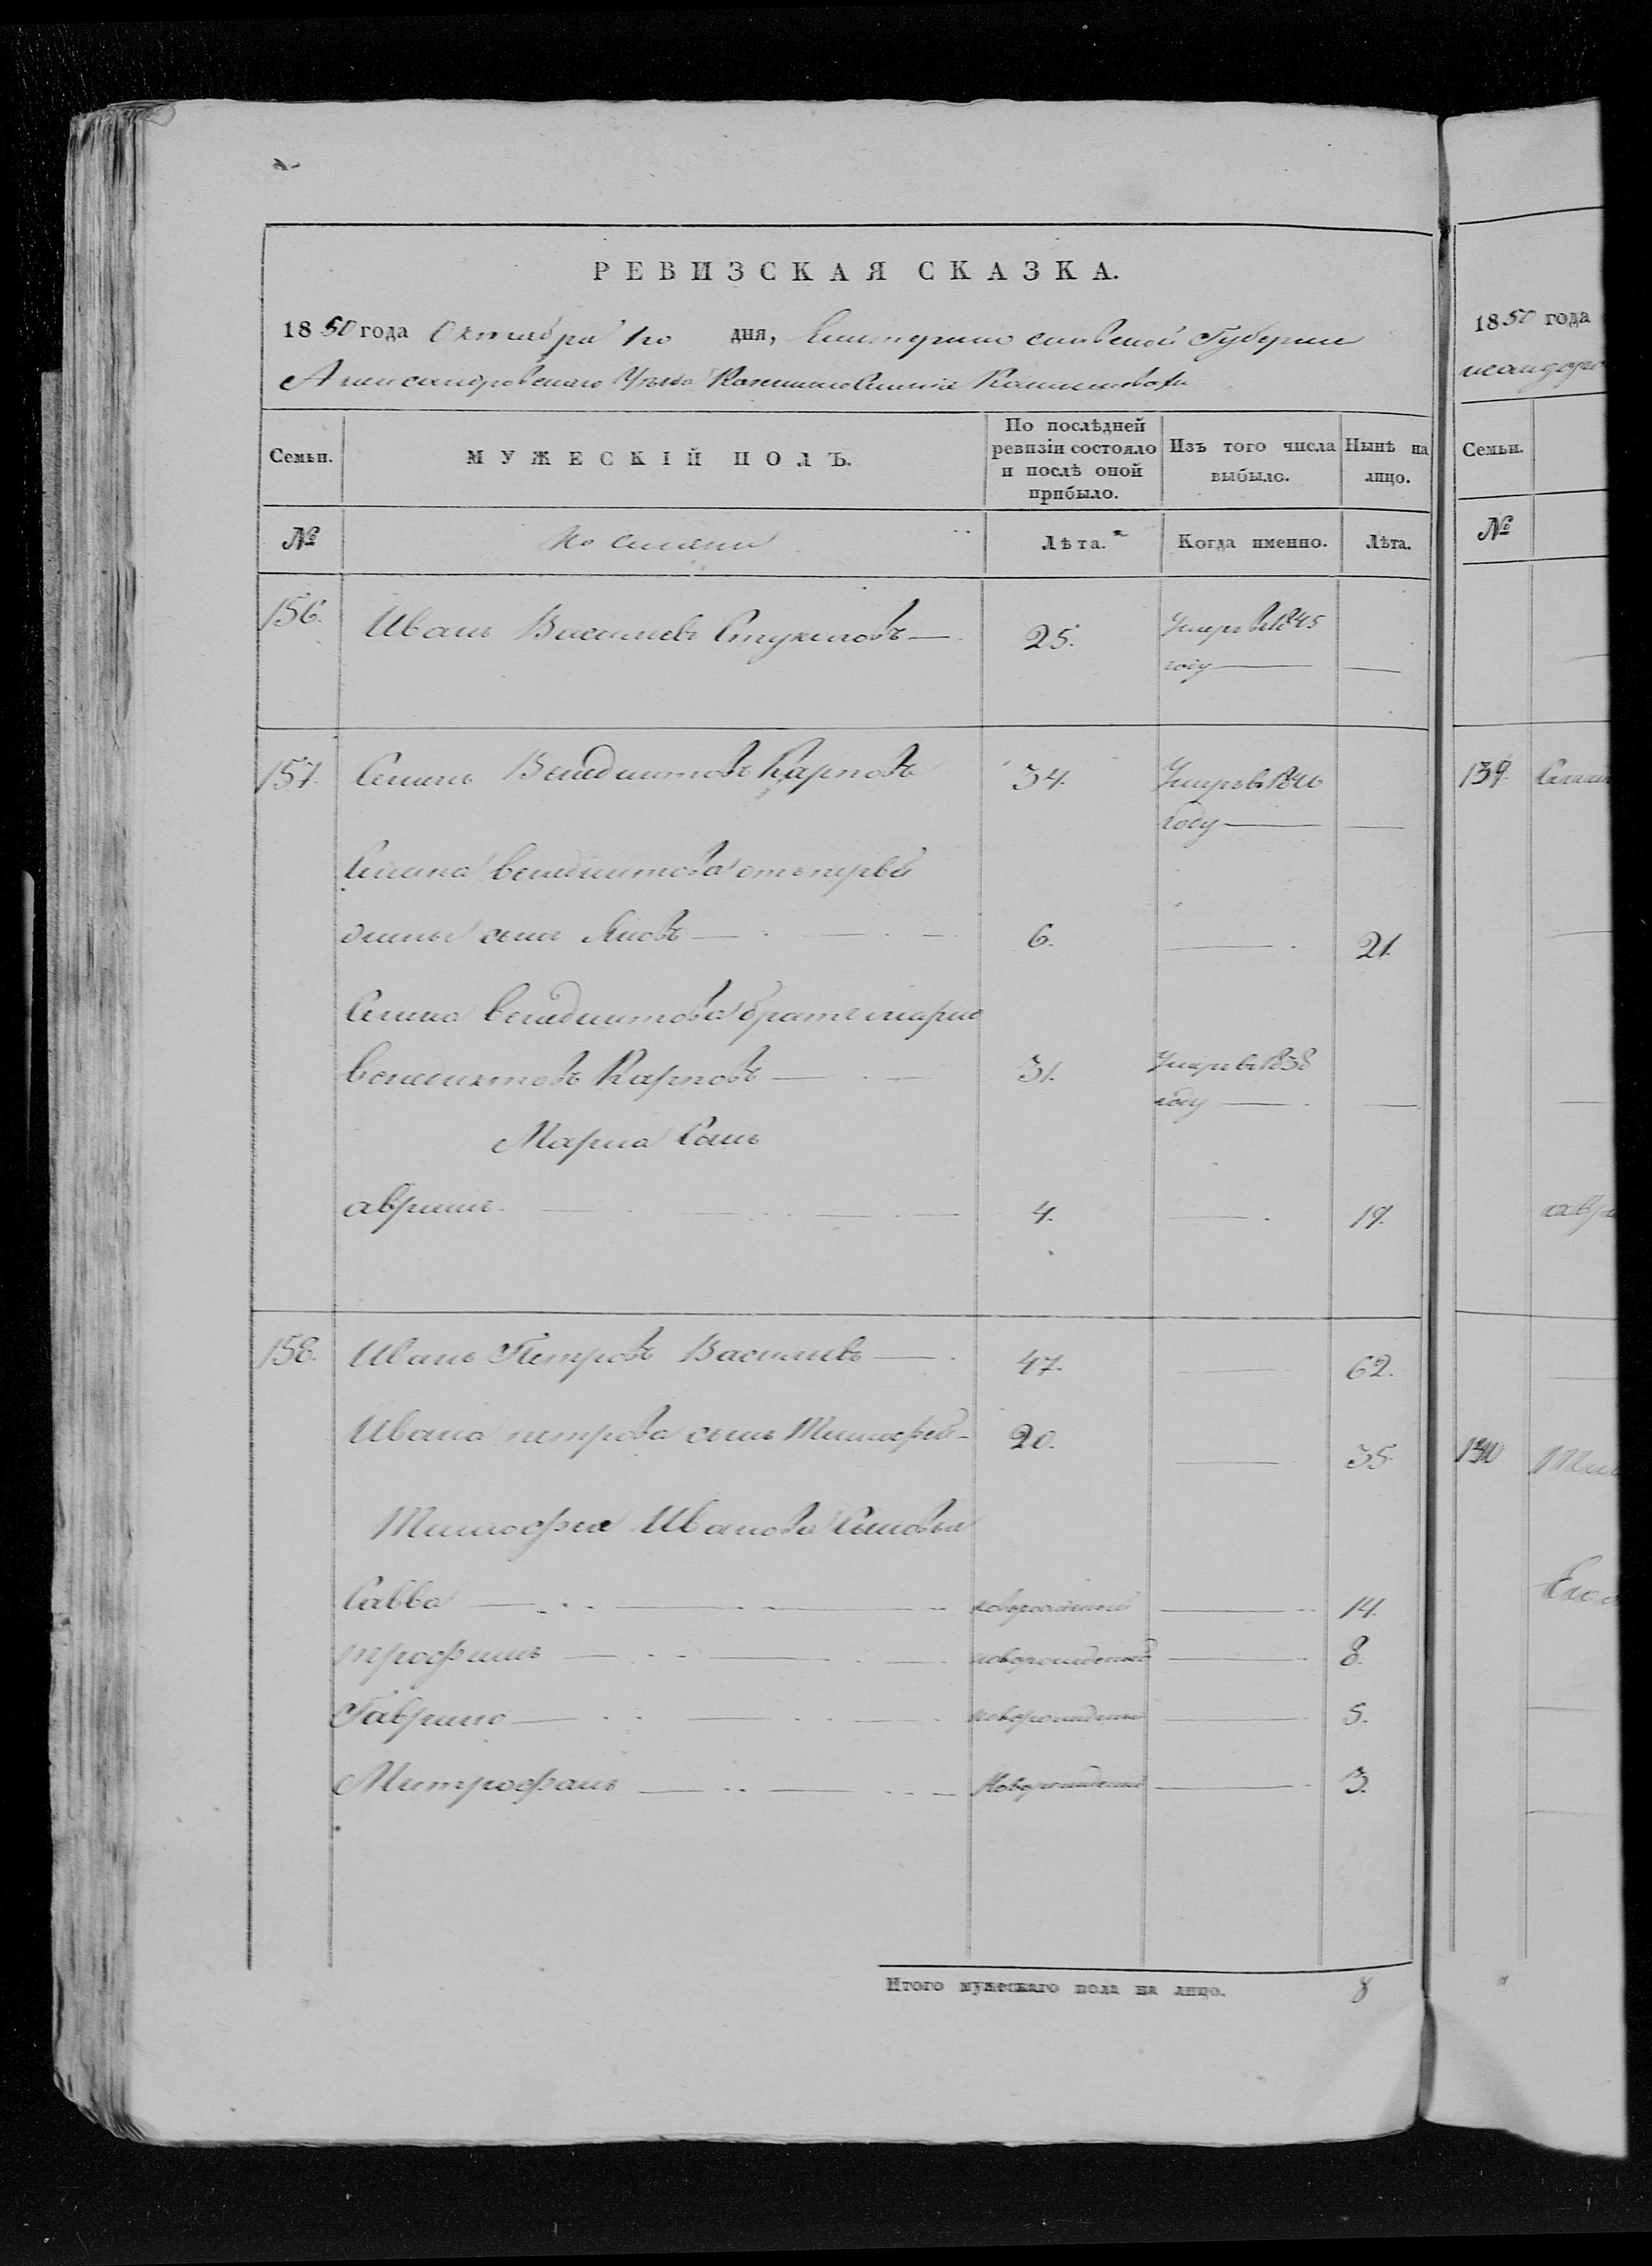 РЕВИЗСКАЯ СКАЗКА.
1850 года Октября 1го дня, Екатеринославской Губернии
Александровскаго Уѣзда Селенія
Семьи.
МУЖЕСКІЙ ПОЛЪ.
По послѣдней ревизіи состояло и послѣ оной прибыло.
Изъ того числа выбыло.
Нынѣ на лицо.
№
Лѣта.
Когда именно.
Лѣта.
156. Иванъ Василіевъ Стукаловъ 25. Умеръ в 1845
году
157. Семенъ Венедиктовъ Карповъ 34. Умеръ в 1846
году
Семена Венедиктова отъ первой
жены сынъ Яковъ 6. 21.
Семена Венедиктова братъ Марко
Венедиктовъ Карповъ 31. Умеръ в 1838
году
Марка Сынъ
аврамъ 4. 19.
158. Иванъ Петровъ Васильевъ 47. 62.
Ивана петрова сынъ Тимофей 20. 35.
Тимофея Иванова Сыновья
Савва новорожденный 14.
трофимъ новорожденный 8.
Гаврило новорожденный 5.
Митрофанъ Новорожденный 3.
Итого мужескаго пола на лицо. 8
1850 года
Семьи.
№
139.
140